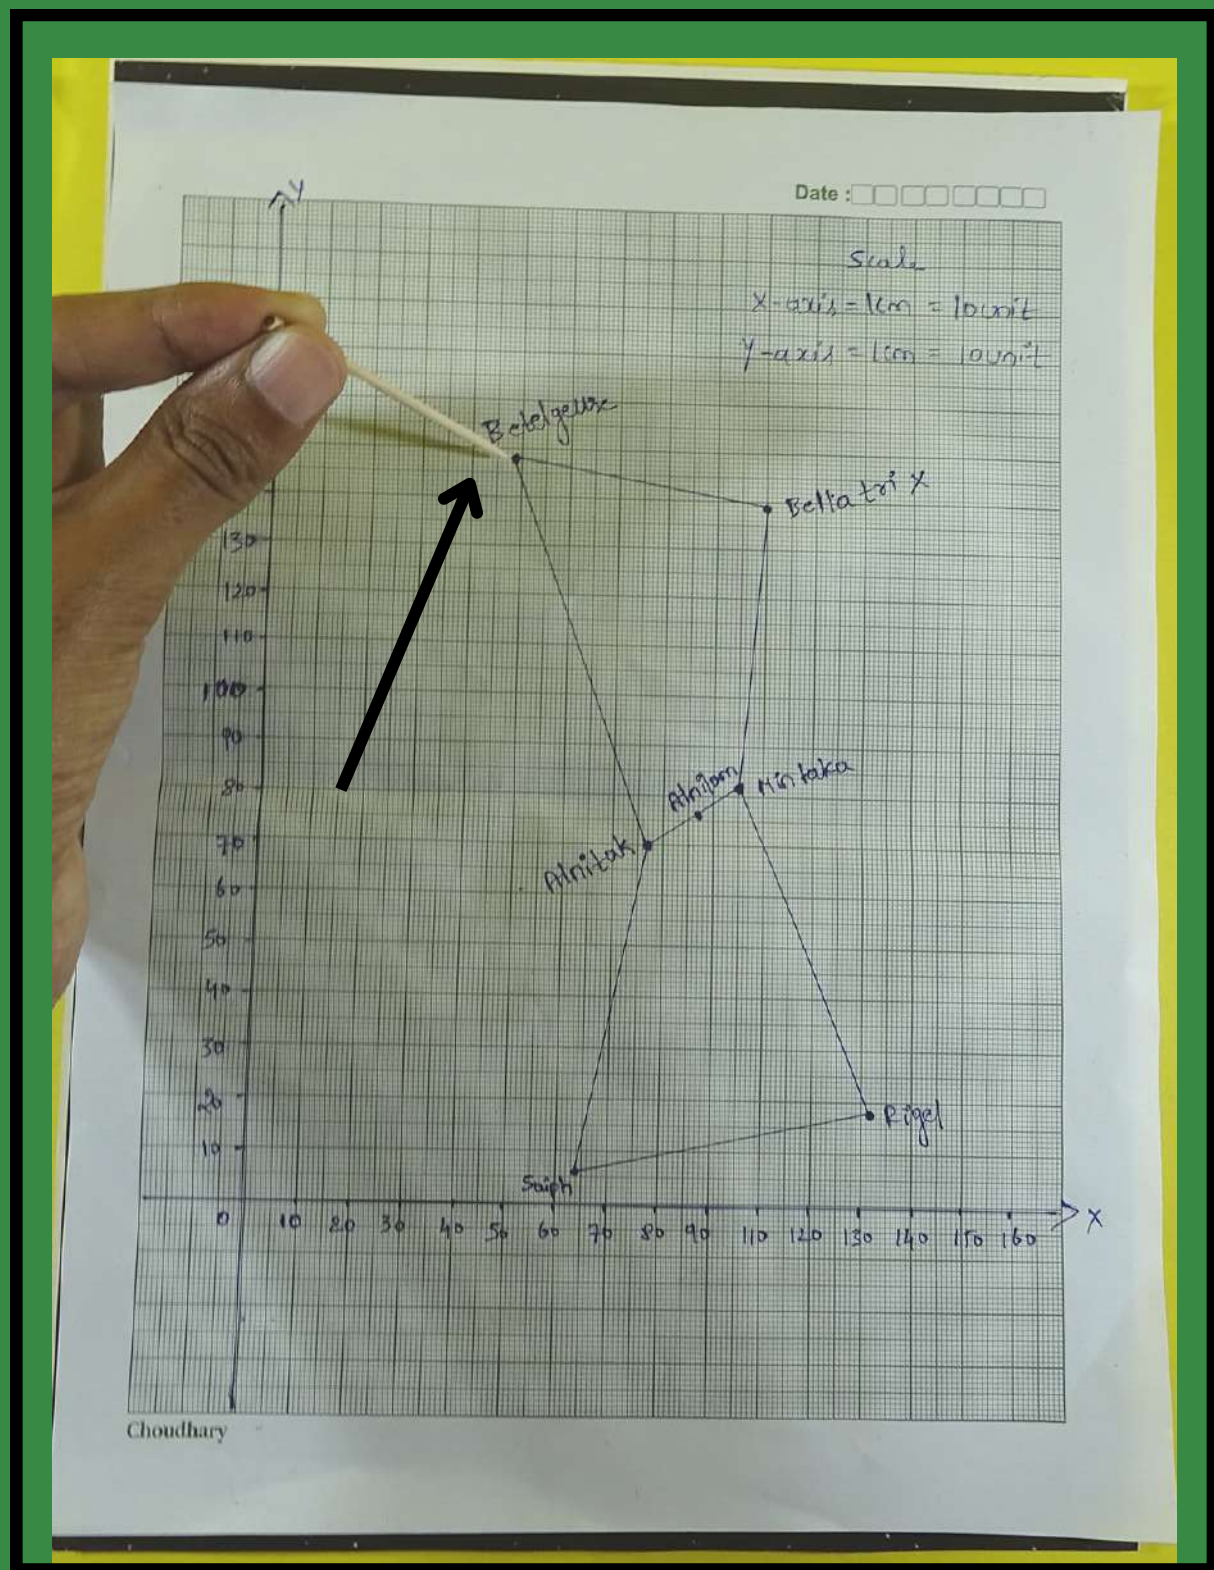 Y
Date :
Scale
X-axis = 1cm = 10unit
Y-axis = 1cm = 10unit
Betelgeuse
Bellatrix
130
120
110
100
90
80
Alnilam
Mintaka
70
Alnitak
60
50
40
30
20
Rigel
10
Saiph
0 10 20 30 40 50 60 70 80 90 110 120 130 140 150 160 X
Choudhary